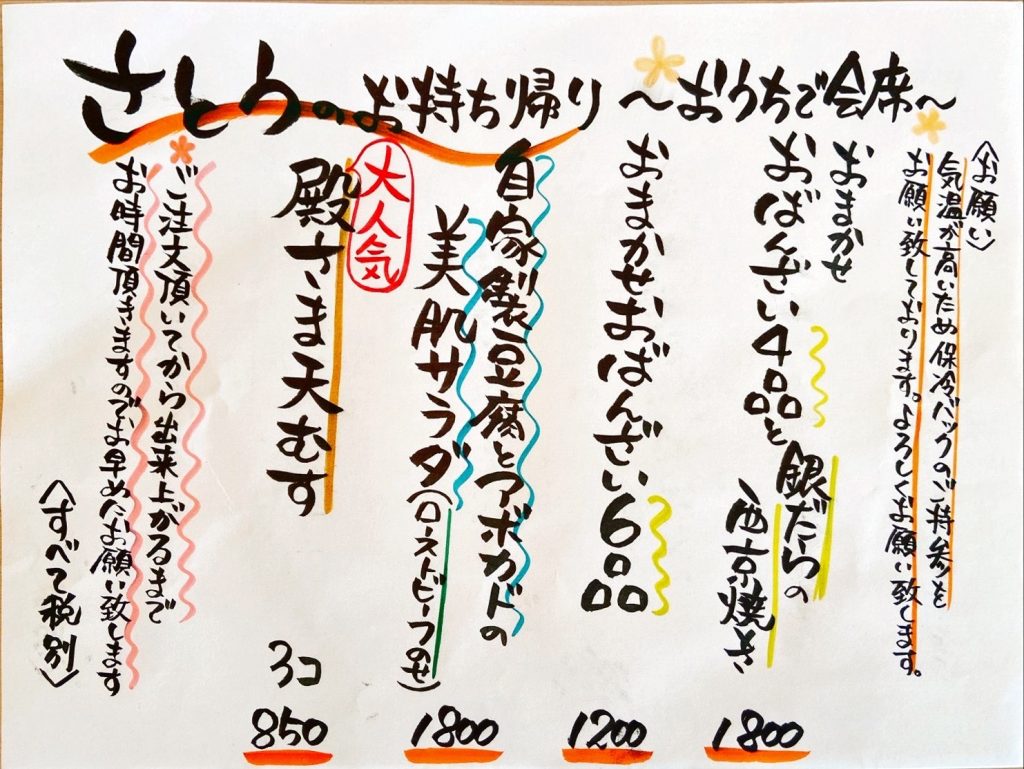 さとうのお持ち帰り 〜おうちで会席〜
〈お願い〉
気温が高いため保冷バックのご持参を
お願い致しております。よろしくお願い致します。
おまかせ
おばんざい4品と銀だらの
西京焼き
1800
おまかせおばんざい6品
1200
自家製豆腐とアボカドの
美肌サラダ(ローストビーフのせ)
1800
大人気
殿さま天むす
3コ
850
ご注文頂いてから出来上がるまで
お時間頂きますのでお早めにお願い致します
〈すべて税別〉